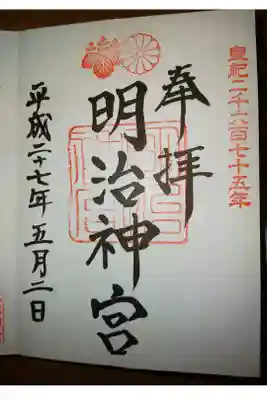 皇紀二千六百七十五年
奉拝
明治神宮
平成二十七年五月二日